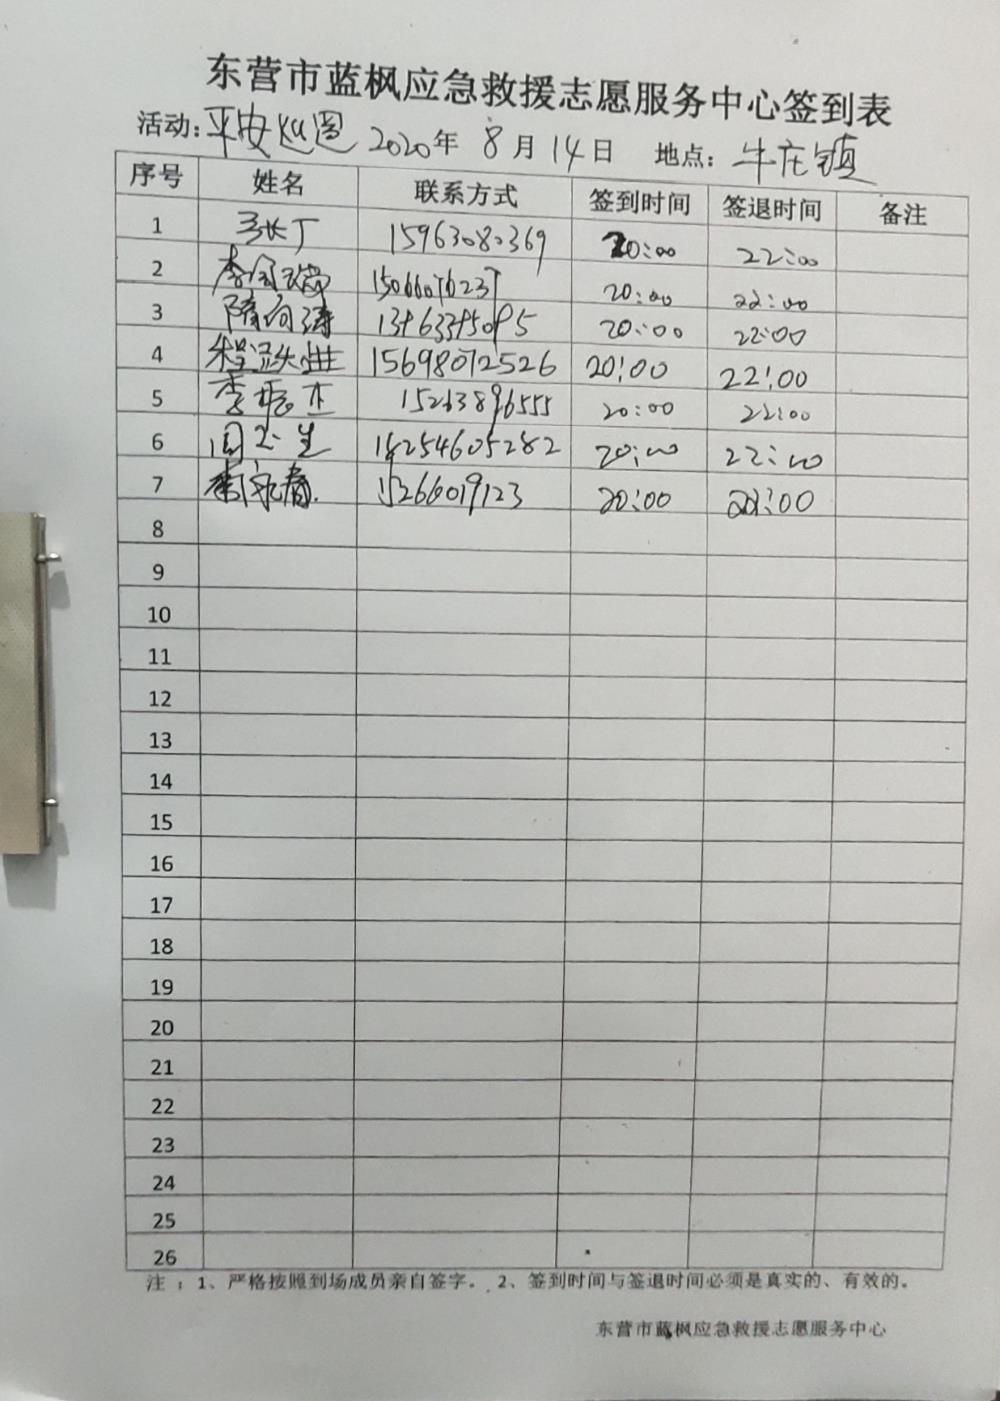 东营市蓝枫应急救援志愿服务中心签到表
活动：平安巡逻 2020年 8月14日 地点：牛庄镇
序号 姓名 联系方式 签到时间 签退时间 备注
1 张丁 15963080369 20:00 22:00
2 20:00 22:00
3 隋向涛 20:00 22:00
4 程跃进 15698072526 20:00 22:00
5 李振杰 15263896555 20:00 22:00
6 周玉生 18254605282 20:00 22:00
7 20:00 22:00
8
9
10
11
12
13
14
15
16
17
18
19
20
21
22
23
24
25
26
注：1、严格按照到场成员亲自签字。 2、签到时间与签退时间必须是真实的、有效的。
东营市蓝枫应急救援志愿服务中心